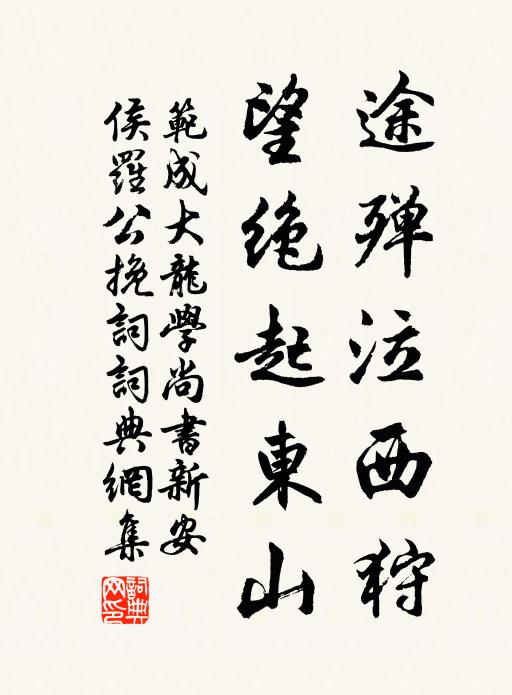 途殫泣西狩
望絕起東山
範成大龍學尚書新安
侯羅公挽詞詞典網集
詞典网印